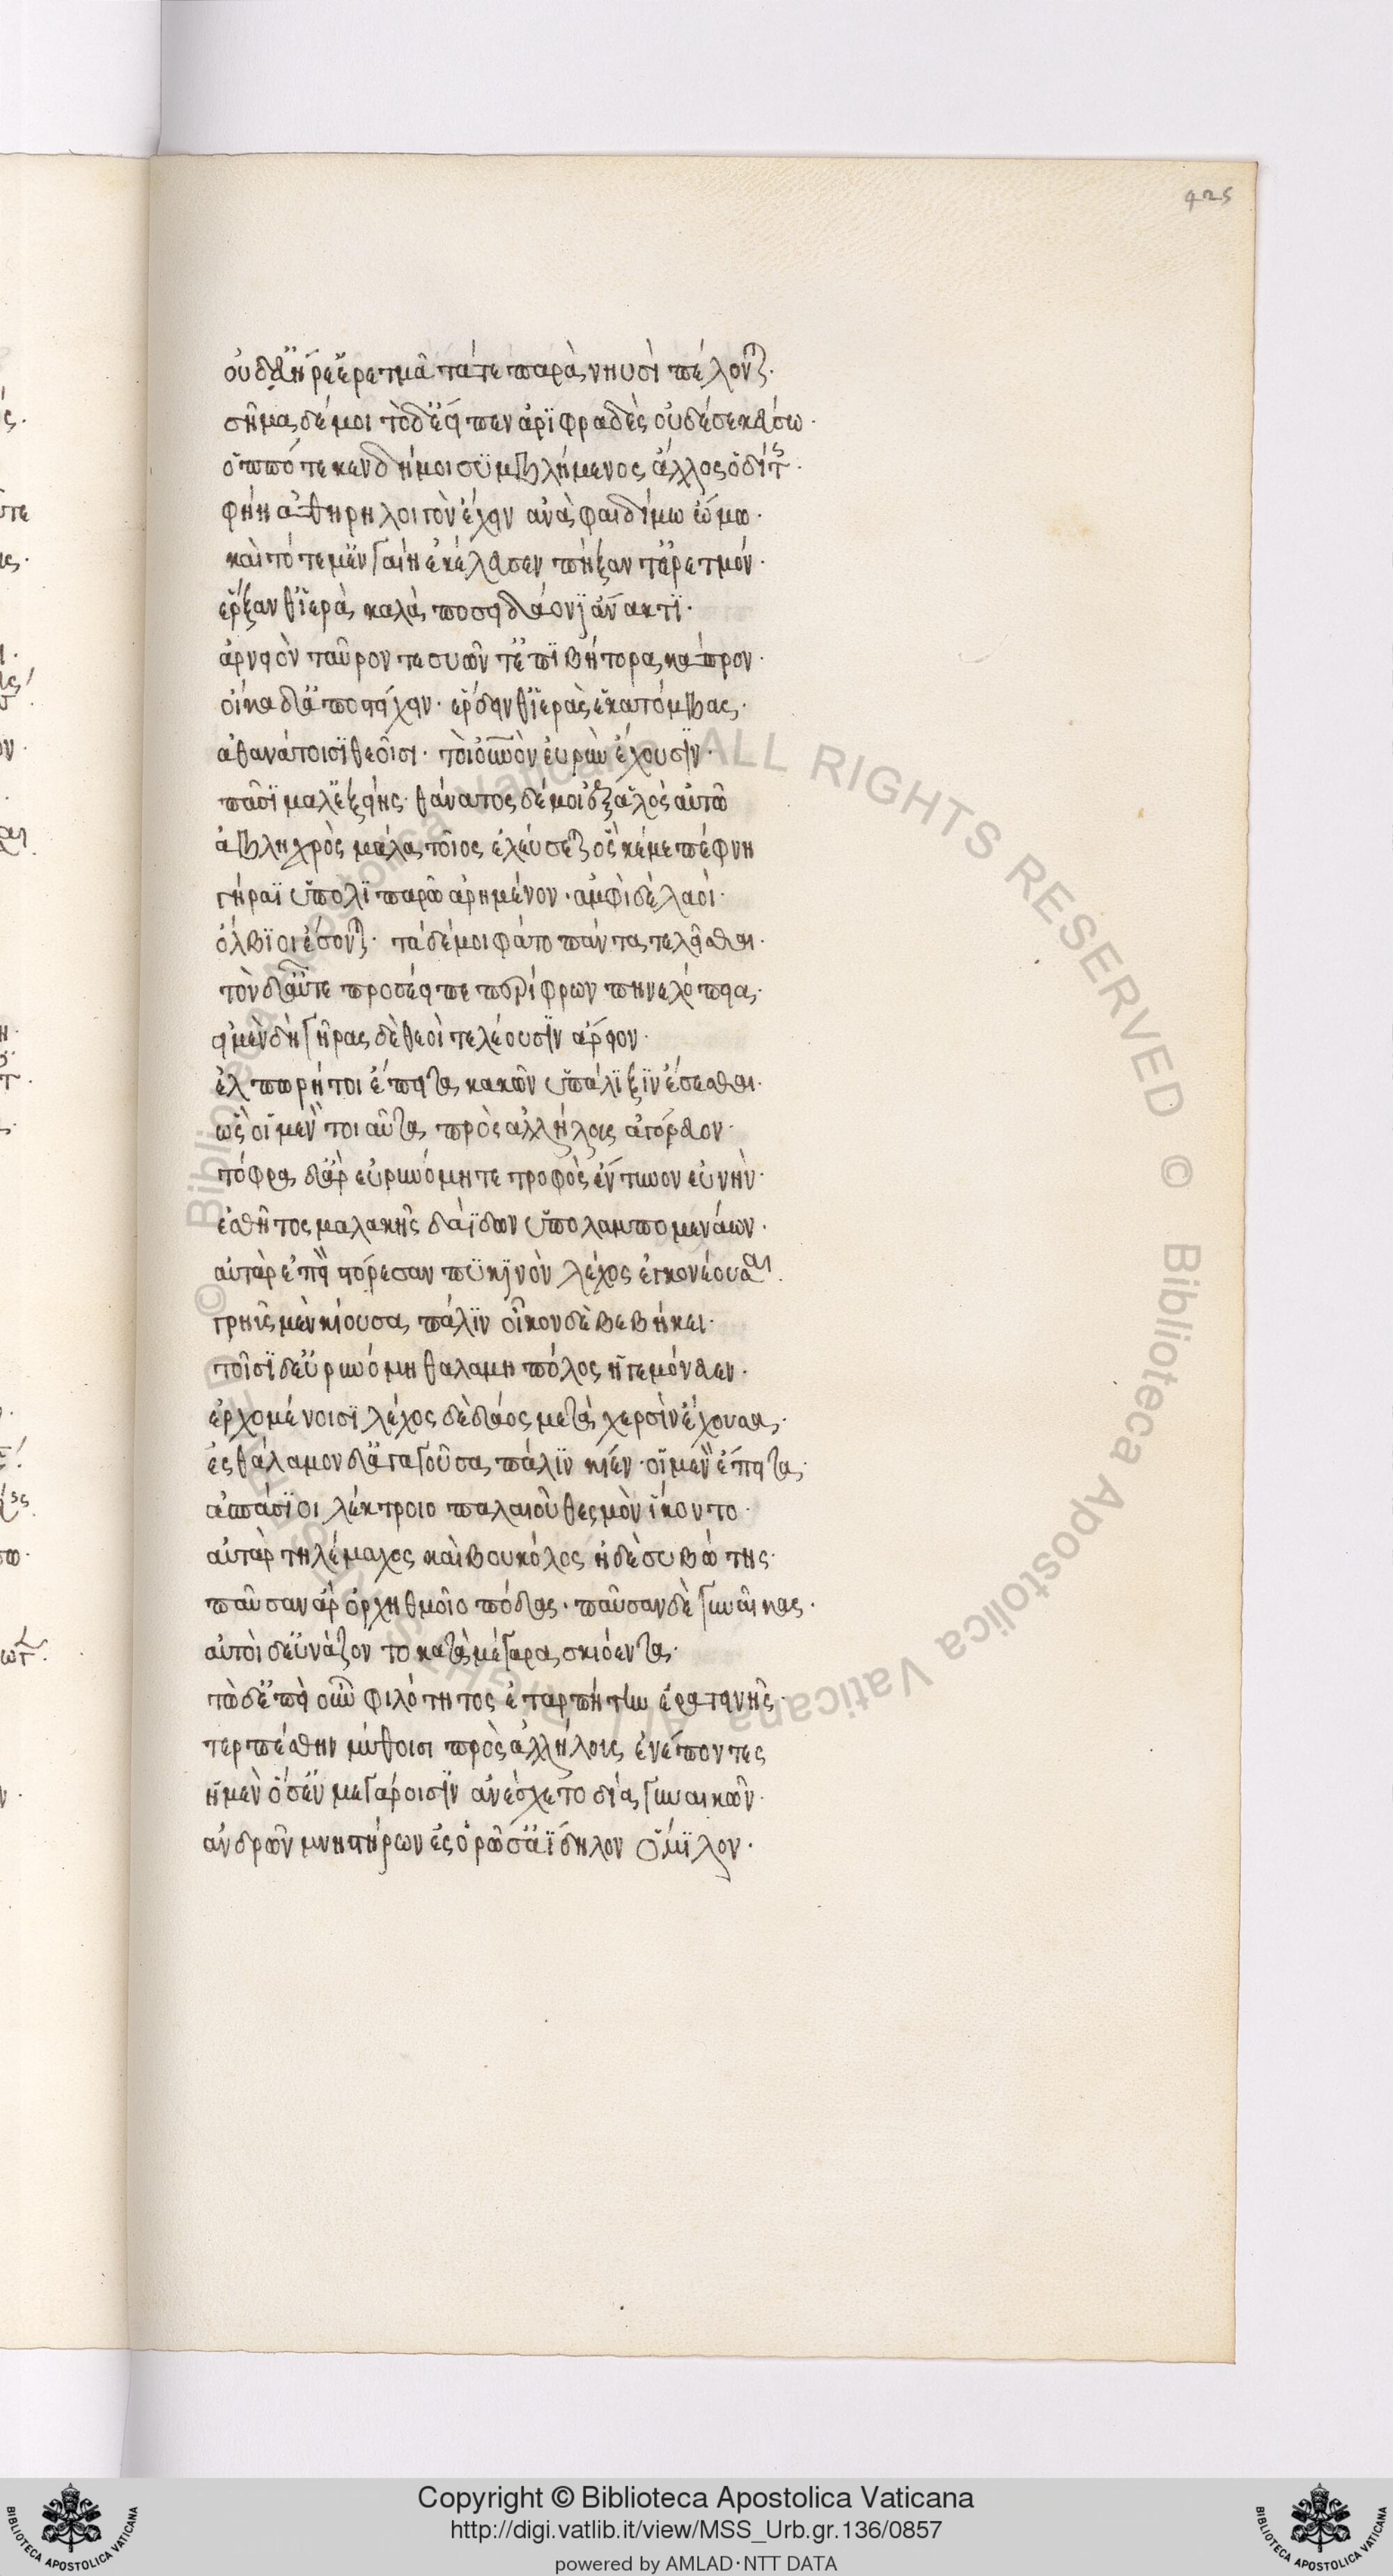 425
οὐδ' εὐήρε' ἐρετμὰ τά τε πτερὰ νηυσὶ πέλονται·
σῆμα δέ μοι τόδ' ἔειπεν ἀριφραδὲς οὐδέ σε κεύσω·
ὁππότε κεν δή μοι συμβλήμενος ἄλλος ὁδίτης·
φήη ἀθηρηλοιγὸν ἔχειν ἀνὰ φαιδίμω ὤμω·
καὶ τότε μ' ἐν γαίη ἐκέλευσεν πήξαντ' ἐρετμόν·
ἔρξανθ' ἱερὰ καλὰ ποσειδάονι ἄνακτι·
ἀρνειὸν ταῦρόν τε συῶν τ' ἐπιβήτορα κάπρον·
οἴκαδ' ἀποστείχειν· ἔρδειν θ' ἱερὰς ἑκατόμβας·
ἀθανάτοισι θεοῖσι· τοὶ οὐρανὸν εὐρὺν ἔχουσιν·
πᾶσι μάλ' ἑξείης· θάνατος δέ μοι ἐξ ἁλὸς αὐτῶ
ἀβληχρὸς μάλα τοῖος ἐλεύσεται ὅς κέ με πέφνη
γήραϊ ὕπο λιπαρῶ ἀρημένον· ἀμφὶ δὲ λαοὶ·
ὄλβιοι ἔσονται· τὰ δέ μοι φάτο πάντα τελεῖσθαι·
τὸν δ' αὖτε προσέειπε περίφρων πηνελόπεια·
εἰ μὲν δὴ γῆράς δὲ θεοὶ τελέουσιν ἄρειον·
ἐλπωρή τοι ἔπειτα κακῶν ὑπάλιξιν ἔσεσθαι·
ὣς οἱ μὲν τοιαῦτα πρὸς ἀλλήλους ἀγόρευον·
τόφρα δ' ἄρ' εὐρυνόμη τε τροφὸς ἔντυον εὐνὴν·
ἐσθῆτος μαλακῆς δαΐδων ὕπο λαμπομενάων·
αὐτὰρ ἐπεὶ στόρεσαν πυκινὸν λέχος ἐγκονέουσαι·
γρηῒς μὲν κίουσα πάλιν οἶκον δὲ βεβήκει·
τοῖσι δ' εὐρυνόμη θαλαμηπόλος ἡγεμόνευεν·
ἐρχομένοισι λέχος δὲ δάος μετὰ χερσὶν ἔχουσα·
ἐς θάλαμον δ' ἀγαγοῦσα πάλιν κίεν· οἱ μὲν ἔπειτα·
ἀσπάσιοι λέκτροιο παλαιοῦ θεσμὸν ἵκοντο·
αὐτὰρ τηλέμαχος καὶ βουκόλος ἠδὲ συβώτης·
παῦσαν ἄρ' ὀρχηθμοῖο πόδας· παῦσαν δὲ γυναῖκας·
αὐτοὶ δ' εὐνάζοντο κατὰ μέγαρα σκιόεντα·
τὼ δ' ἐπεὶ οὖν φιλότητος ἐταρπήτην ἐρατεινῆς·
τερπέσθην μύθοισι πρὸς ἀλλήλους ἐνέποντες
ἡ μὲν ὅσ' ἐν μεγάροισιν ἀνέσχετο δῖα γυναικῶν·
ἀνδρῶν μνηστήρων ἐσορῶσ' ἀΐδηλον ὅμιλον·
ALL RIGHTS RESERVED © Biblioteca Apostolica Vaticana
Copyright © Biblioteca Apostolica Vaticana
http://digi.vatlib.it/view/MSS_Urb.gr.136/0857
powered by AMLAD·NTT DATA